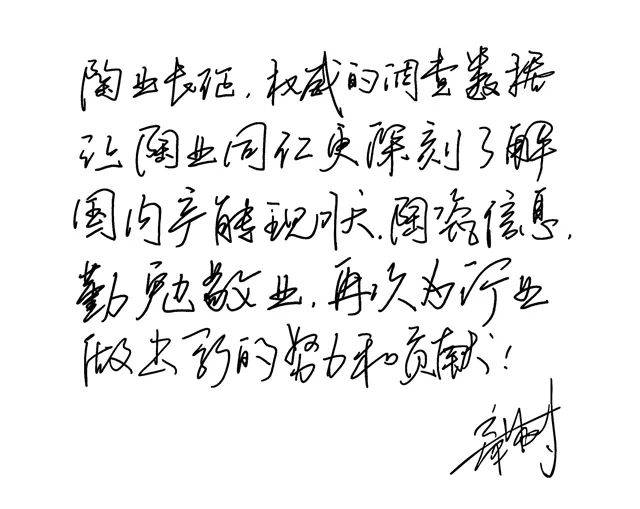 陶业长征，权威的调查数据
让陶业同仁更深刻了解
国内产能现状。陶瓷信息，
勤勉敬业，再次为行业
做出新的努力和贡献！